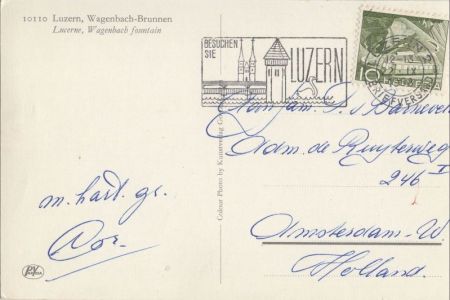 10110 Luzern, Wagenbach-Brunnen
Lucerne, Wagenbach fountain
BESUCHEN
SIE
LUZERN
10
Colour Photo by Kunstverlag
Fam. J. v. Barneveld
Adm. de Ruyterweg
246 I
Amsterdam-W.
Holland.
m. hart. gr.
Cor.